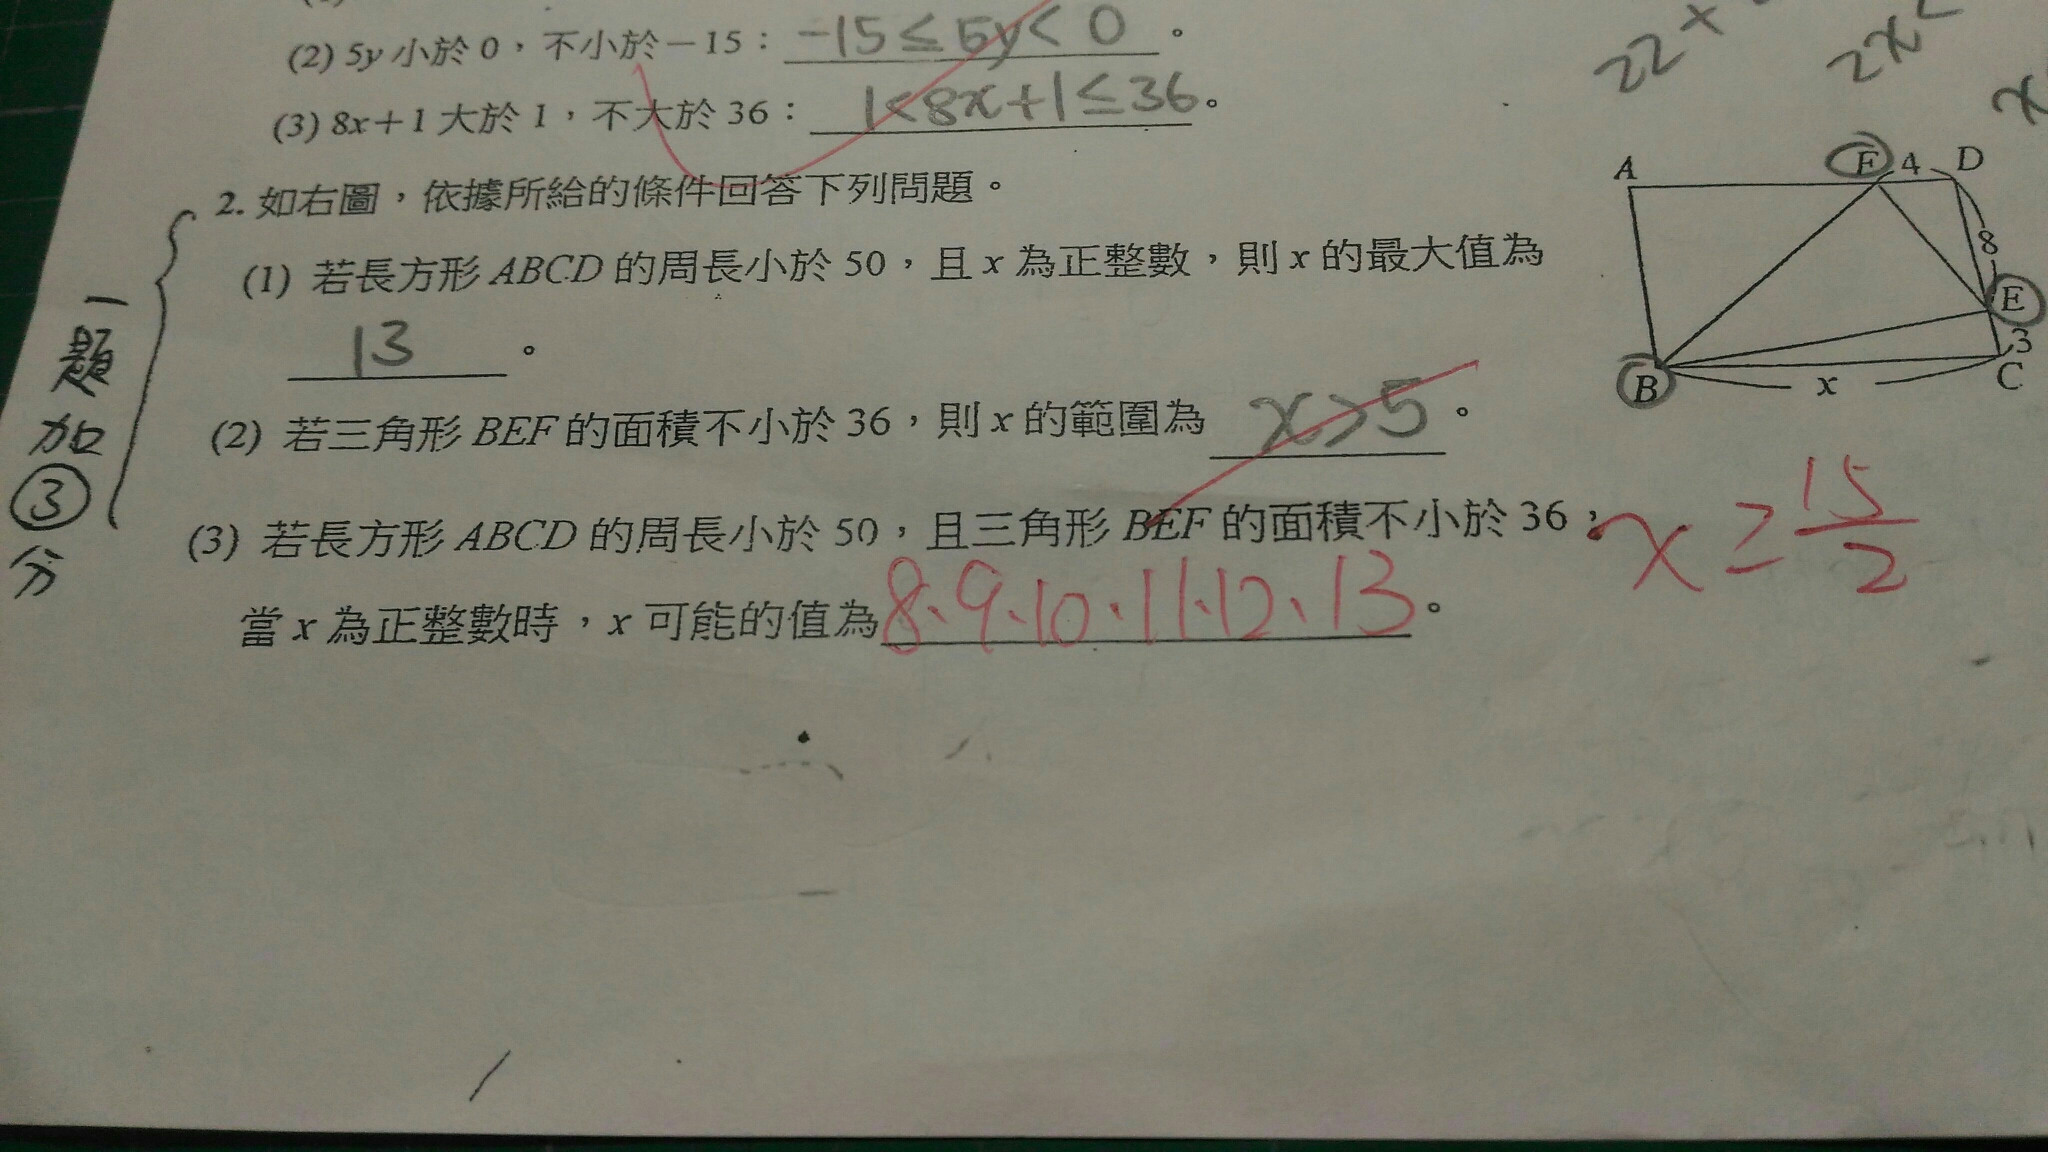 (2) 5y 小於 0，不小於－15： -15≤5y<0 。
(3) 8x＋1 大於 1，不大於 36： 1<8x+1≤36 。
2. 如右圖，依據所給的條件回答下列問題。
(1) 若長方形 ABCD 的周長小於 50，且 x 為正整數，則 x 的最大值為
13 。
(2) 若三角形 BEF 的面積不小於 36，則 x 的範圍為 x>5 。
x ≥ 15/2
(3) 若長方形 ABCD 的周長小於 50，且三角形 BEF 的面積不小於 36，
當 x 為正整數時，x 可能的值為 8、9、10、11、12、13 。
一題加③分
22x
2x2
x
A F 4 D
8
E
3
B x C